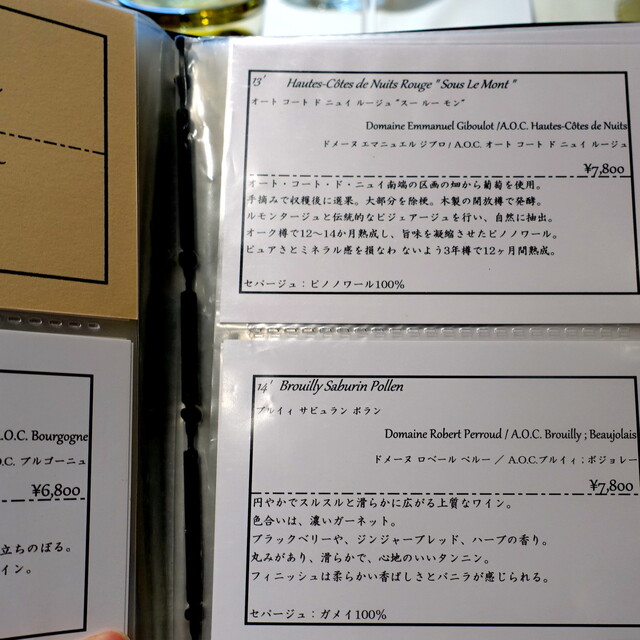 13' Hautes-Côtes de Nuits Rouge "Sous Le Mont"
オート コート ド ニュイ ルージュ "スー ルー モン"
Domaine Emmanuel Giboulot /A.O.C. Hautes-Côtes de Nuits
ドメーヌ エマニュエル ジブロ / A.O.C. オート コート ド ニュイ ルージュ
¥7,800
オート・コート・ド・ニュイ南端の区画の畑から葡萄を使用。
手摘みで収穫後に選果。大部分を除梗。木製の開放樽で発酵。
ルモンタージュと伝統的なピジェアージュを行い、自然に抽出。
オーク樽で12〜14か月熟成し、旨味を凝縮させたピノノワール。
ピュアさとミネラル感を損なわ ないよう3年樽で12ヶ月間熟成。
セパージュ：ピノノワール100%
14' Brouilly Saburin Pollen
ブルイィ サビュラン ポラン
Domaine Robert Perroud / A.O.C. Brouilly ; Beaujolais
ドメーヌ ロベール ペルー ／ A.O.C.ブルイィ；ボジョレー
¥7,800
円やかでスルスルと滑らかに広がる上質なワイン。
色合いは、濃いガーネット。
ブラックベリーや、ジンジャーブレッド、ハーブの香り。
丸みがあり、滑らかで、心地のいいタンニン。
フィニッシュは柔らかい香ばしさとバニラが感じられる。
セパージュ：ガメイ100%
.O.C. Bourgogne
OC. ブルゴーニュ
¥6,800
立ちのぼる。
イン。